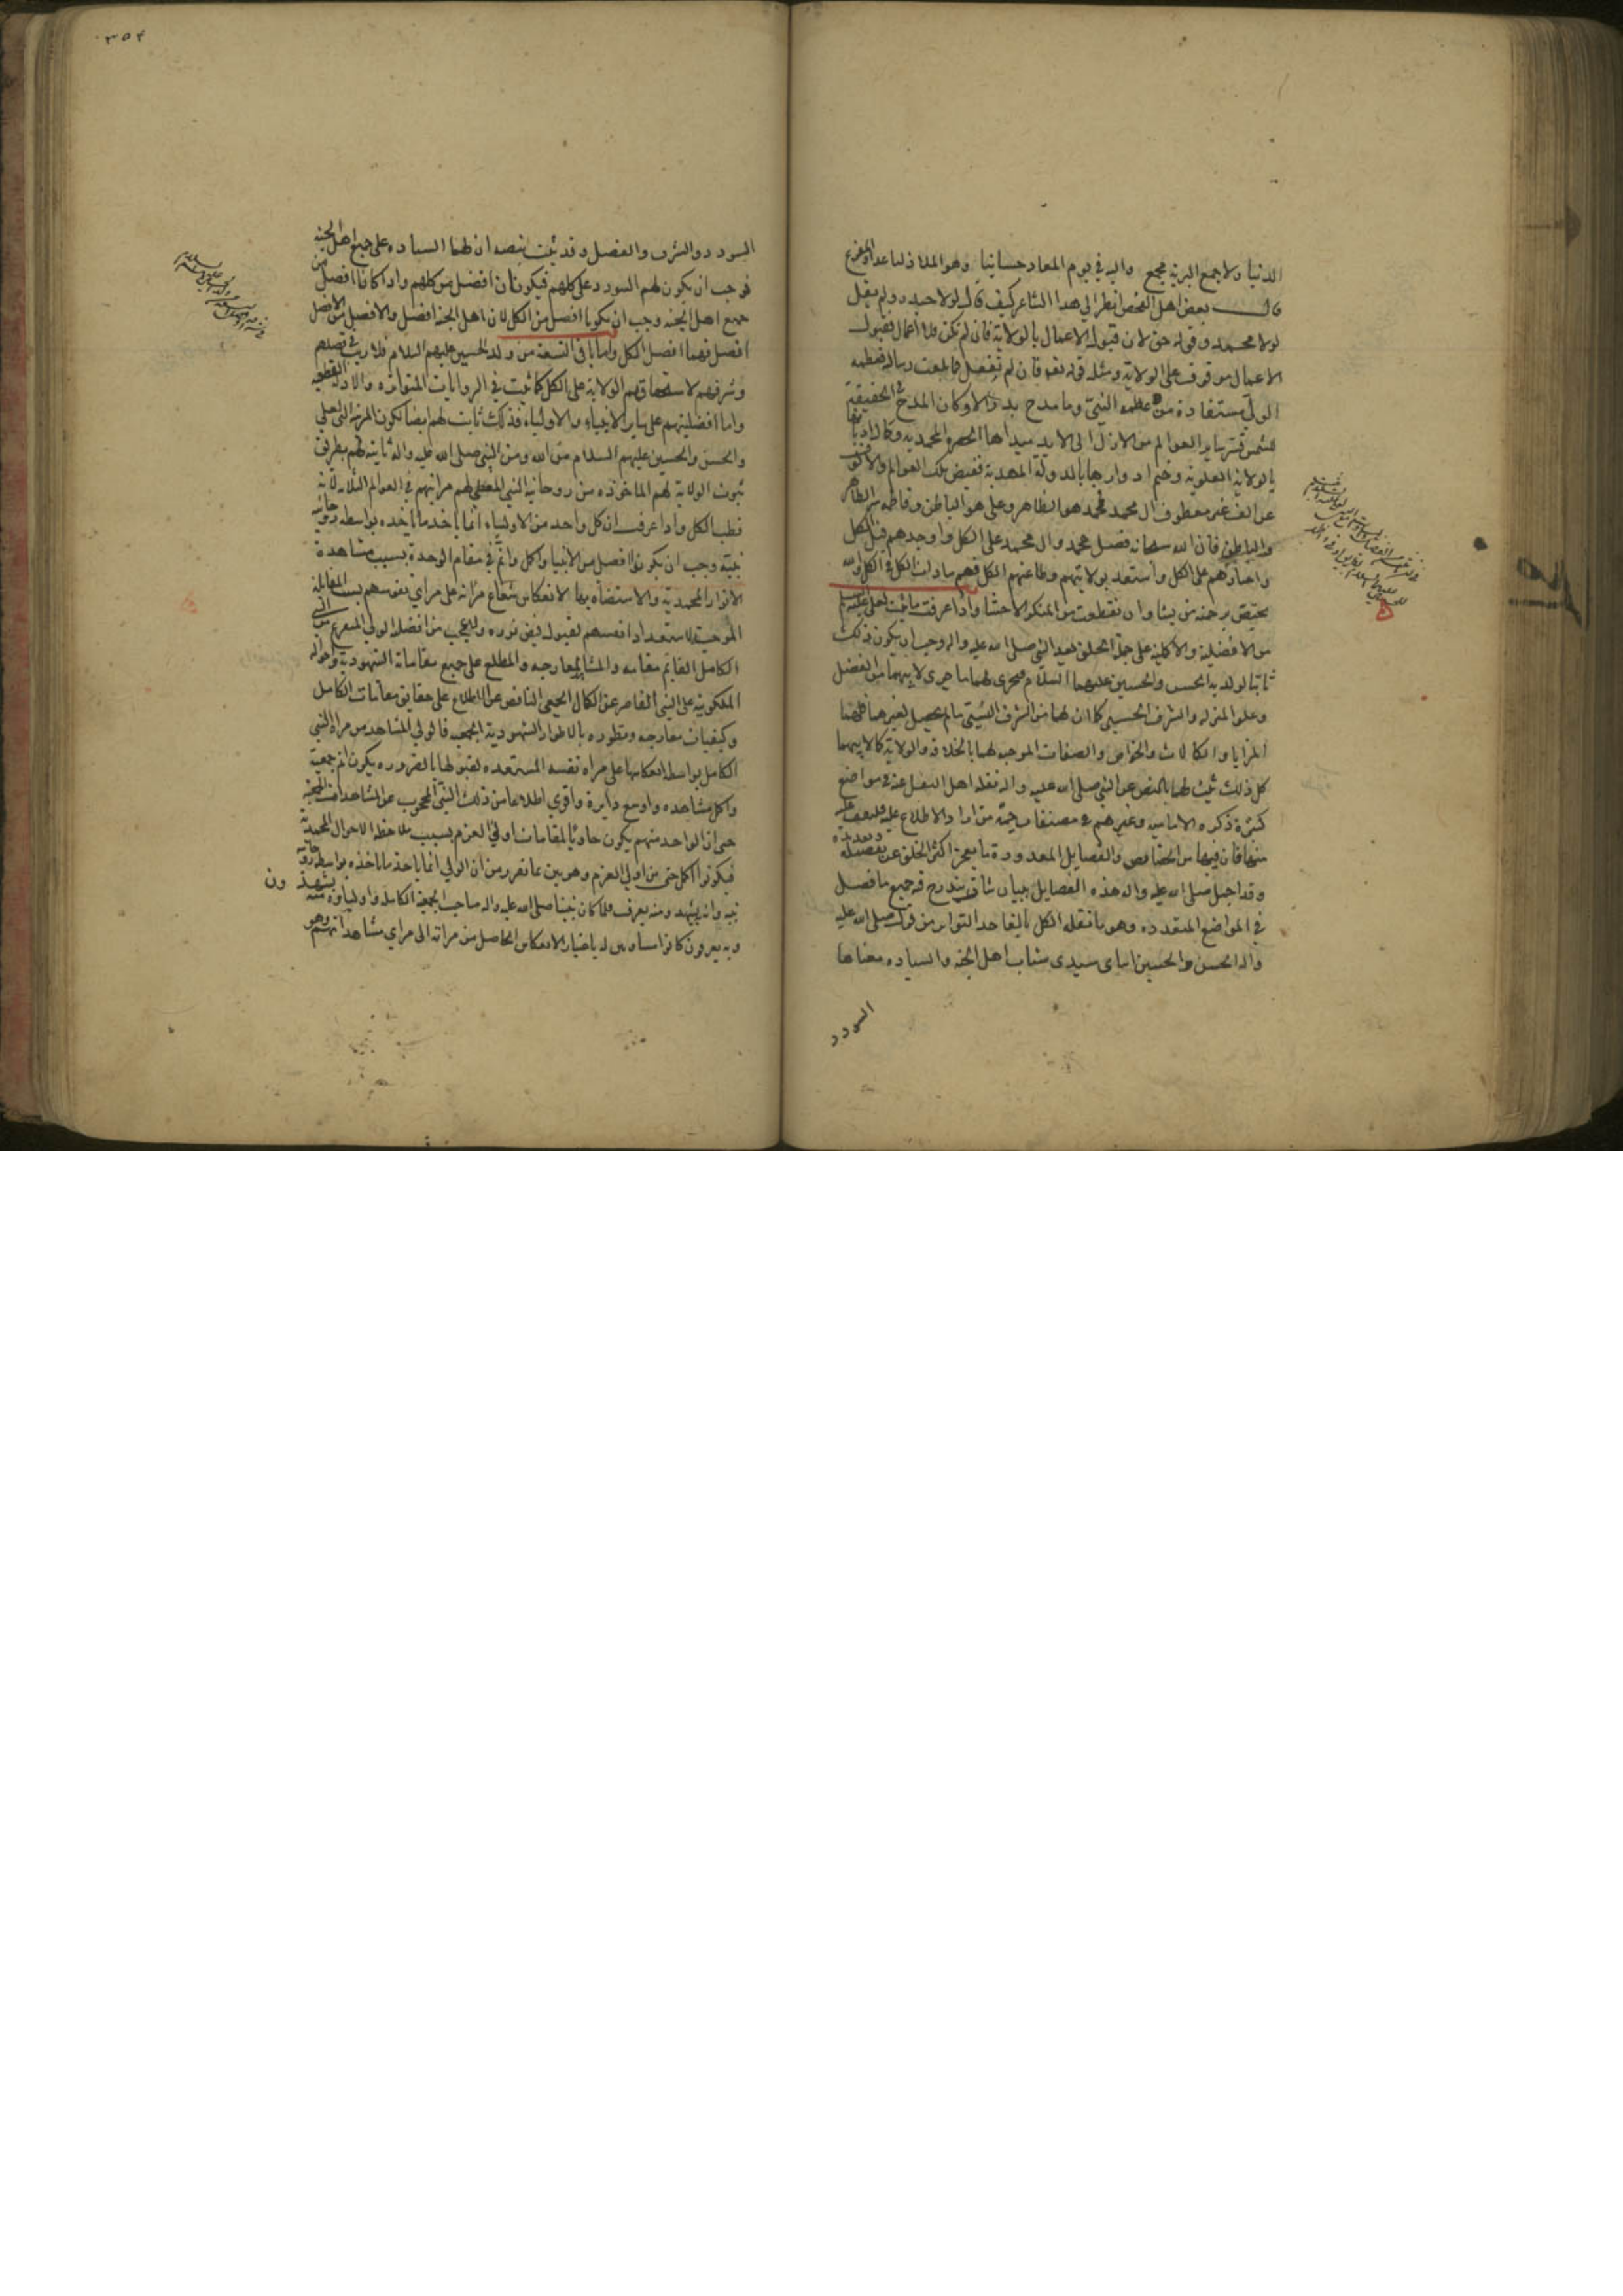 الدنيا ولا جمع البرية مجمع واليه في يوم المعاد حسابنا وهو الملاذ لنا غدا والمفزع
قال بعض اهل الفحص انظر الي هذا الشاعر كيف قال لولا حيدر ولم يقل
لولا محمد وقوله حق لان قبول الاعمال بالولاية فان لم تكن فلا اعمال فقبول
الاعمال موقوف على الولاية ومثله قوله تعالى فان لم تفعل فما بلغت رسالته فعظمة
الولي مستفادة من عظمة النبي وما مدح بدر الا وكان المدح في الحقيقة
لشمس فسر ساير العوالم من الازل الى الابد مبداها الحضرة المحمدية وكمال
بالولاية العلوية وختم ادوارها بالدولة المهدية ففيض تلك العوالم
عن الف غير معطوف ال محمد فمحمد هو الظاهر وعلي هو الباطن وفاطمه سر الظاهر
والباطن فان الله سبحانه فضل محمد وال محمد على الكل واوجدهم قبل الكل
واختارهم على الكل واستعبد بولايتهم وطاعتهم الكل فهم سادات الكل في الكل والله
يختص برحمته من يشا وان تقطعت من المنكر الاحشا واذا عرفت ما ثبت لعلي عليه السلم
من الافضلية والاكملية على جملة الخلق بعد النبي صلى الله عليه واله وجب ان يكون ذلك
ثابتا لولديه الحسن والحسين عليهما السلام فجرى لهما ما جرى لابيهما من الفضل
وعلو المنزله والشرف الحسبي كما ان لهما من الشرف النسبي ما لم يحصل لغيرهما
المزايا والكمالات والخواص والصفات الموجبه لهما بالخلافه والولاية كما لابيهما
كل ذلك ثبت لهما بالنص عن النبي صلى الله عليه واله نقله اهل النقل عنه في مواضع
كثيرة ذكره الاماميه وغيرهم في مصنفات جمة من اراد الاطلاع عليه
منها فان فيها من الخصايص والفضايل المعدودة ما يعجز اكثر الخلق عن تفصيله
وقد اجمل صلى الله عليه واله هذه الفضايل ببيان شاف يندرج فيه جميع ما فصل
في المواضع المتعدده وهو ما نقله الكل بالغا حد التواتر من قوله صلى الله عليه
واله الحسن والحسين اماى سيدى شباب اهل الجنه والسياده معناها
السودد
٣٥٤
السودد والشرف والفضل وقد ثبت بنصه ان لهما السياده على جميع اهل الجنه
فوجب ان يكون لهم السودد على كلهم فيكونان افضل من كلهم واذا كانا افضل من
جميع اهل الجنه وجب ان يكونا افضل من الكل لان اهل الجنه افضل والافضل من الافضل
افضل فهما افضل الكل واما باقي التسعة من ولد الحسين عليهم السلام فلا ريب في فضلهم
وشرفهم لاستحقاقهم الولاية على الكل كما ثبت في الروايات المتواتره والادلة القطعيه
واما افضليتهم على ساير الانبياء والاولياء فذلك ثابت لهم ايضا لكون المرتبه التي لعلي
والحسن والحسين عليهم السلام من الله ومن النبي صلى الله عليه واله ثابته لهم بطريق
ثبوت الولاية لهم الماخوذه من روحانية النبي المعطي لهم مراتبهم في العوالم الثلاثه لانه
قطب الكل واذا عرفت ان كل واحد من الاولياء انما ياخذ ما ياخذه بواسطه روحانية
نبيه وجب ان يكونوا افضل من الانبيا واكمل واتم في مقام الوحدة بسبب مشاهدة
الانوار المحمدية والاستضاه بها لانعكاس شعاع مراته على مراي نفوسهم بسبب المقابلة
الموجبة لاستعداد انفسهم لقبول فيض نوره ولا عجب من افضلية الولي المتفرع من النبي
الكامل القايم مقامه والمشابه لمعارجه والمطلع على جميع مقاماته الشهودية واحواله
الملكوتية على النبي القاصر عن الكمال الجمعي الناقص عن الاطلاع على حقايق مقامات الكامل
وكيفيات معارجه وتطوره بالاطوار الشهودية الجمعيه فالولي المشاهد من مراة النبي
الكامل بواسطه انعكاسها على مراه نفسه المستعده لقبولها بالضروره يكون اتم جمعية
واكمل مشاهده واوسع دايرة واقوي اطلاعا من ذلك النبي المحجوب عن المشاهدات
حتى ان الواحد منهم يكون حاويا لمقامات اولي العزم بسبب ملاحظه الاحوال المحمدية
فيكونوا اكمل حتى من اولي العزم وهو بين مما تقرر من ان الولي انما ياخذ ما ياخذه بواسطه روحانية
نبيه وانه يشهد ومنه يعرف فلما كان نبينا صلى الله عليه واله صاحب الجمعية الكاملة واولياوه منه يشهدون
وبه يعرفون كانوا مساويين له باعتبار الانعكاس الحاصل من مراته الى مراي مشاهداتهم وهو